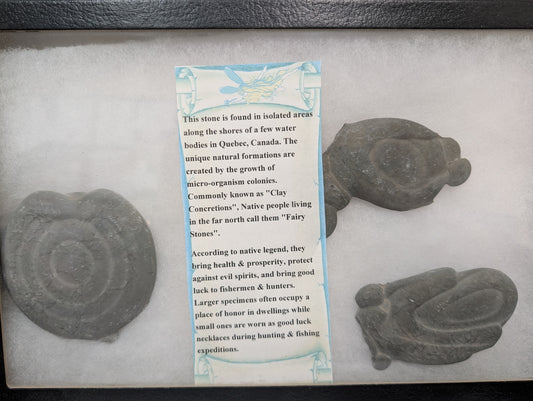 This stone is found in isolated areas
along the shores of a few water
bodies in Quebec, Canada. The
unique natural formations are
created by the growth of
micro-organism colonies.
Commonly known as "Clay
Concretions", Native people living
in the far north call them "Fairy
Stones".
According to native legend, they
bring health & prosperity, protect
against evil spirits, and bring good
luck to fishermen & hunters.
Larger specimens often occupy a
place of honor in dwellings while
small ones are worn as good luck
necklaces during hunting & fishing
expeditions.